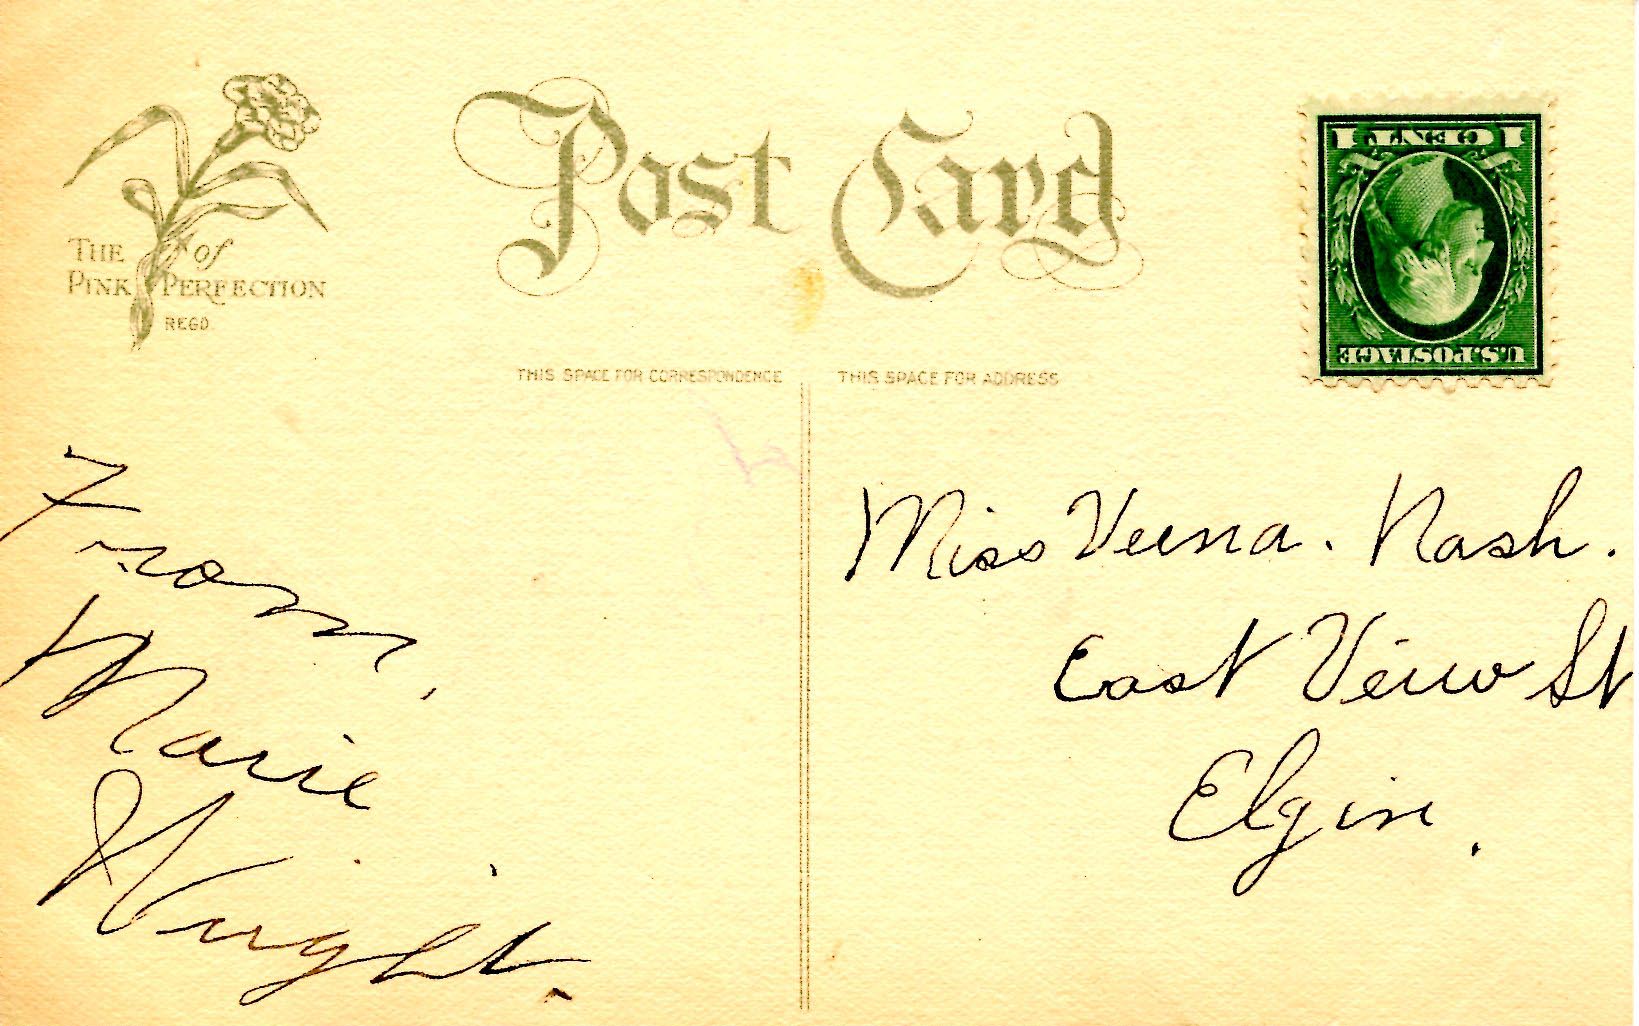 THE of
PINK PERFECTION
REGD.
Post Card
1 CENT 1
U.S. POSTAGE
THIS SPACE FOR CORRESPONDENCE
THIS SPACE FOR ADDRESS
From,
Marie
Wright.
Miss Verna. Nash.
East Veiw St
Elgin.